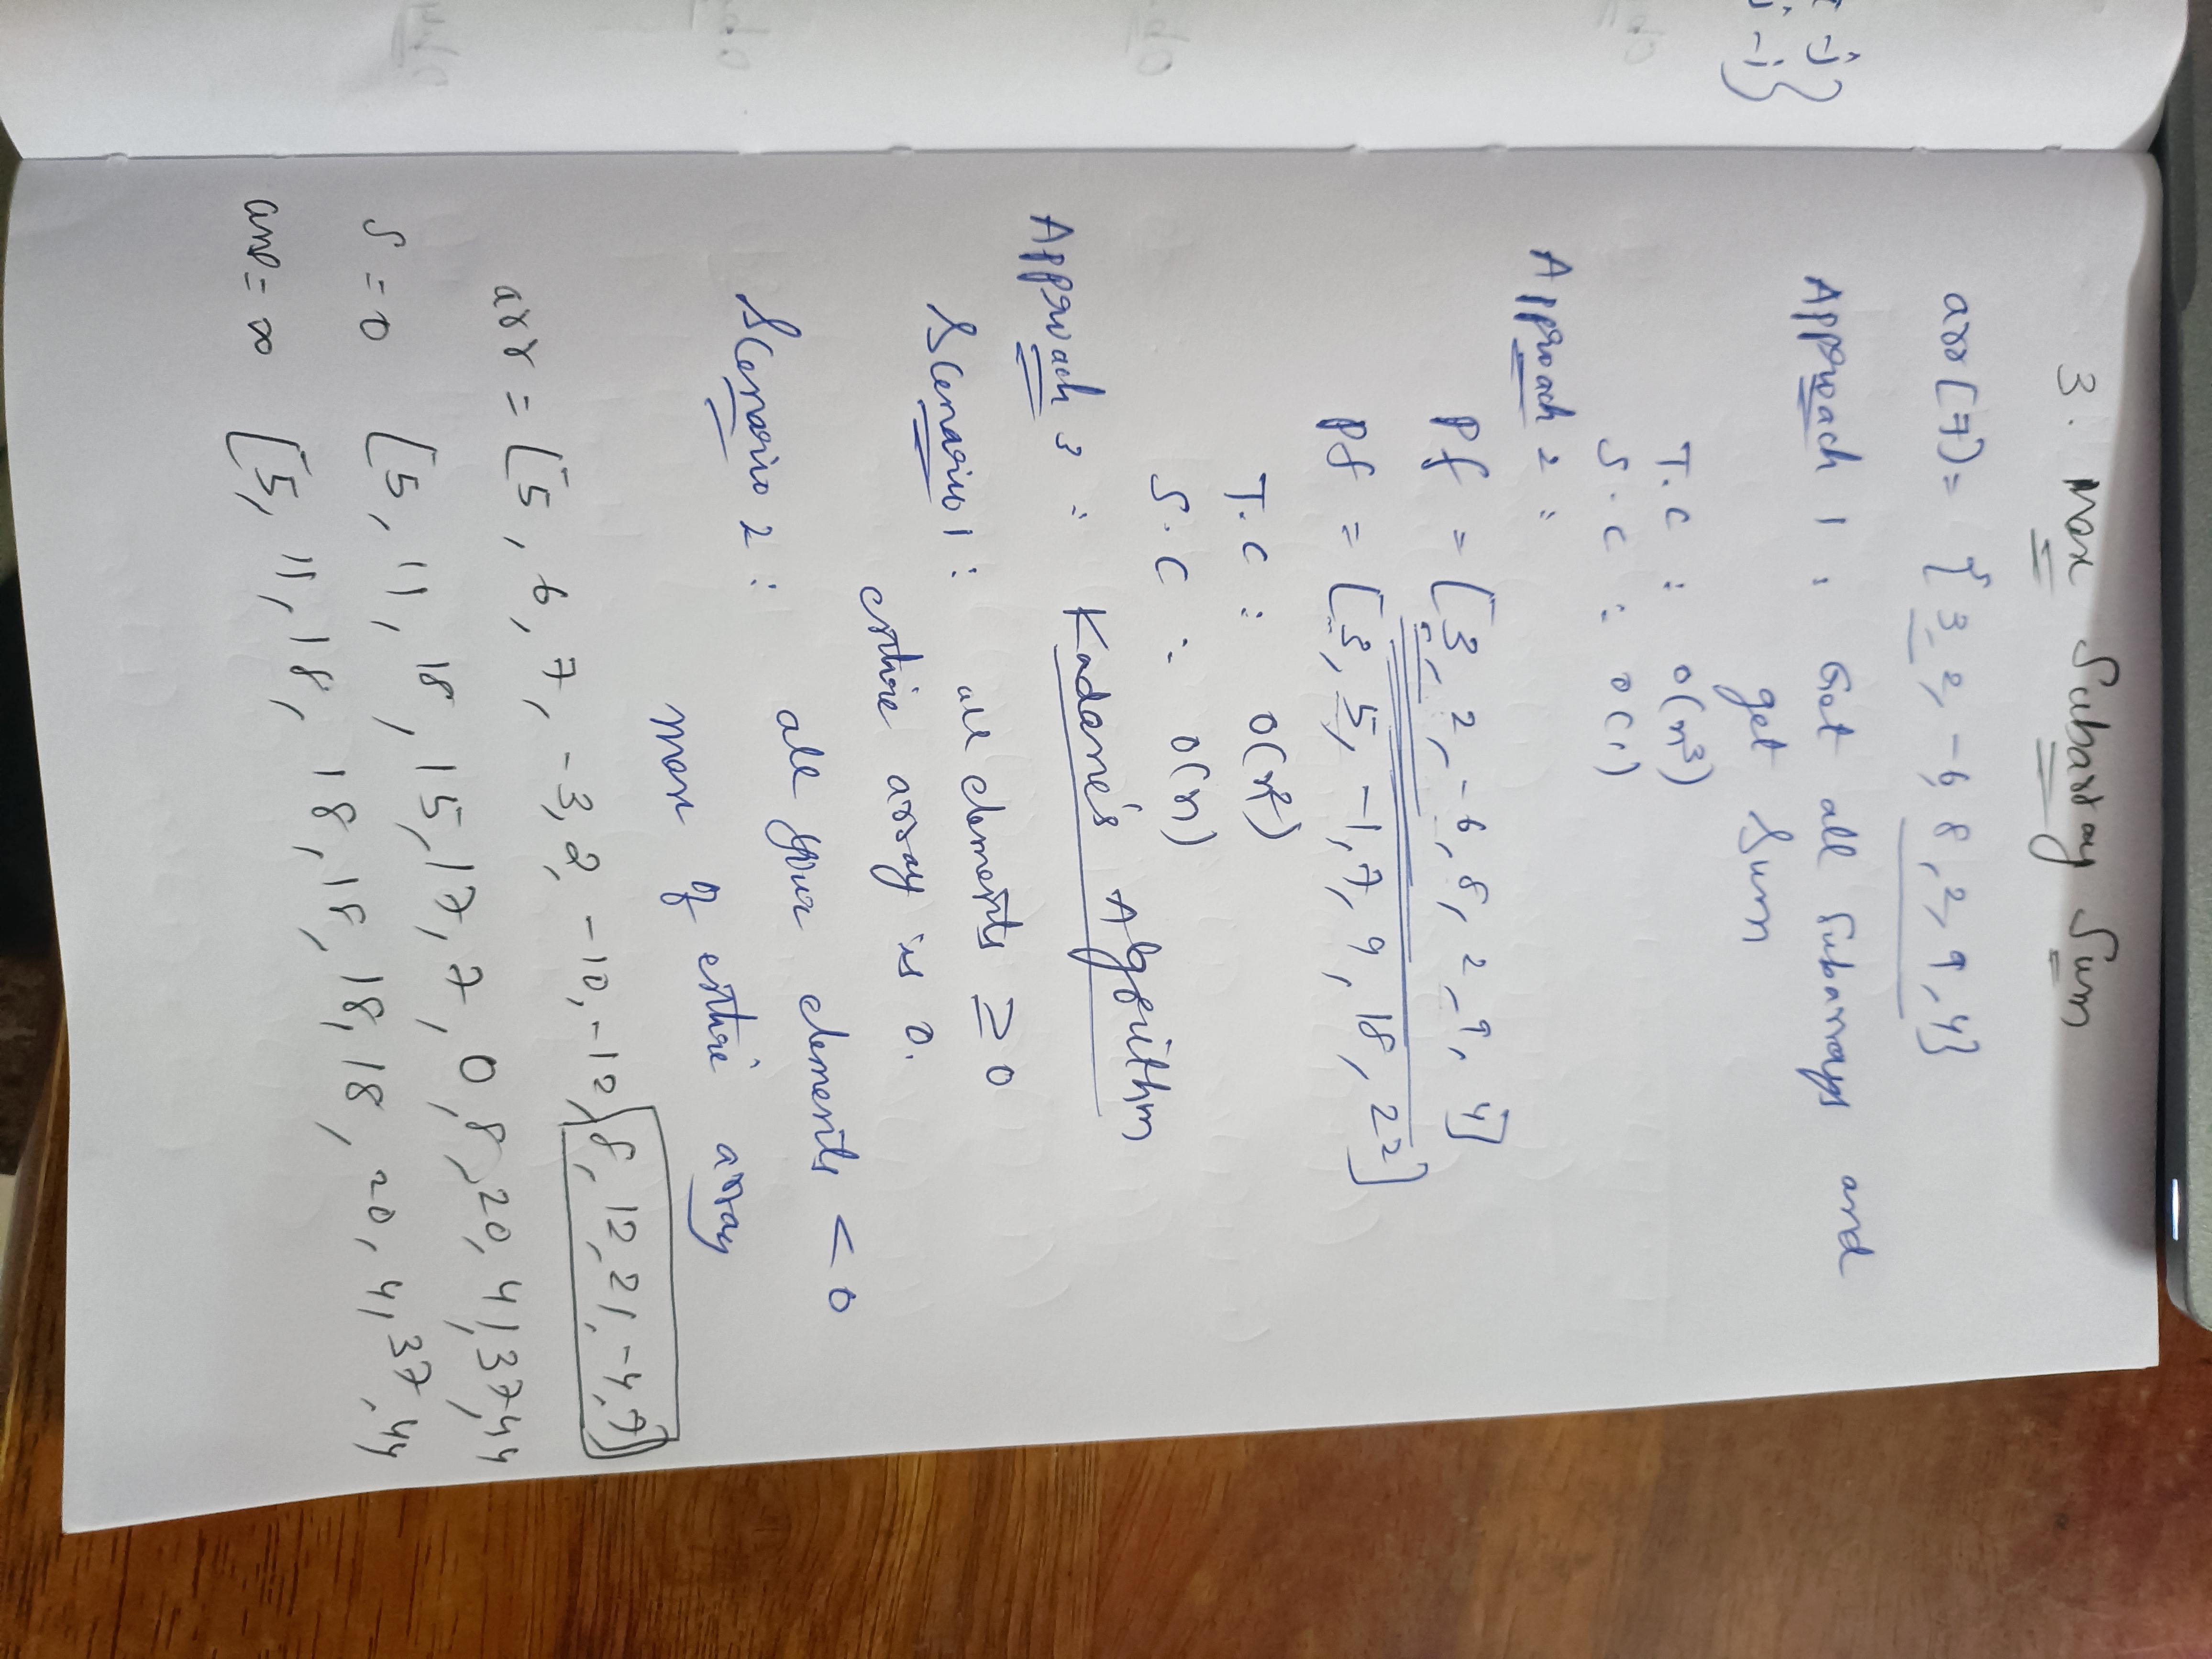 3. Max Subarray Sum
arr(7) = { 3, 2, -6, 8, 2, 9, 4}
Approach 1 : Got all Subarrays and
get Sum
T.C : O(n³)
S.C : O(1)
Approach 2 :
Pf = [3, 2, -6, 8, 2, 9, 4]
Pf = [3, 5, -1, 7, 9, 18, 22]
T.C : O(n²)
S.C : O(n)
Approach 3 : Kadane's Algorithm
Scenario 1 : all elements ≥ 0
entire array is 0.
Scenario 2 : all your elements < 0
max of entire array
arr = [5, 6, 7, -3, 2, -10, -12, 8, 12, 21, -4, 7]
S = 0 [5, 11, 18, 15, 17, 7, 0, 8, 20, 41, 37, 44
ans = ∞ [5, 11, 18, 18, 18, 18, 18, 20, 41, 37, 44